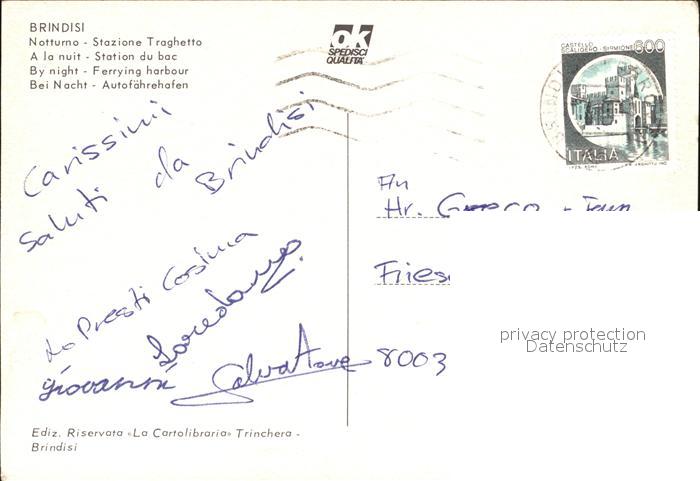 BRINDISI
Notturno - Stazione Traghetto
A la nuit - Station du bac
By night - Ferrying harbour
Bei Nacht - Autofährehafen
ok
SPEDISCI
QUALITA'
CASTELLO
SCALIGERO - SIRMIONE 600
ITALIA
Carissimi
Saluti da Brindisi
Lo Presti Cosima
Loredana
Giovanni Salvatore
An
Hr.
8003
privacy protection
Datenschutz
Ediz. Riservata «La Cartolibraria» Trinchera -
Brindisi